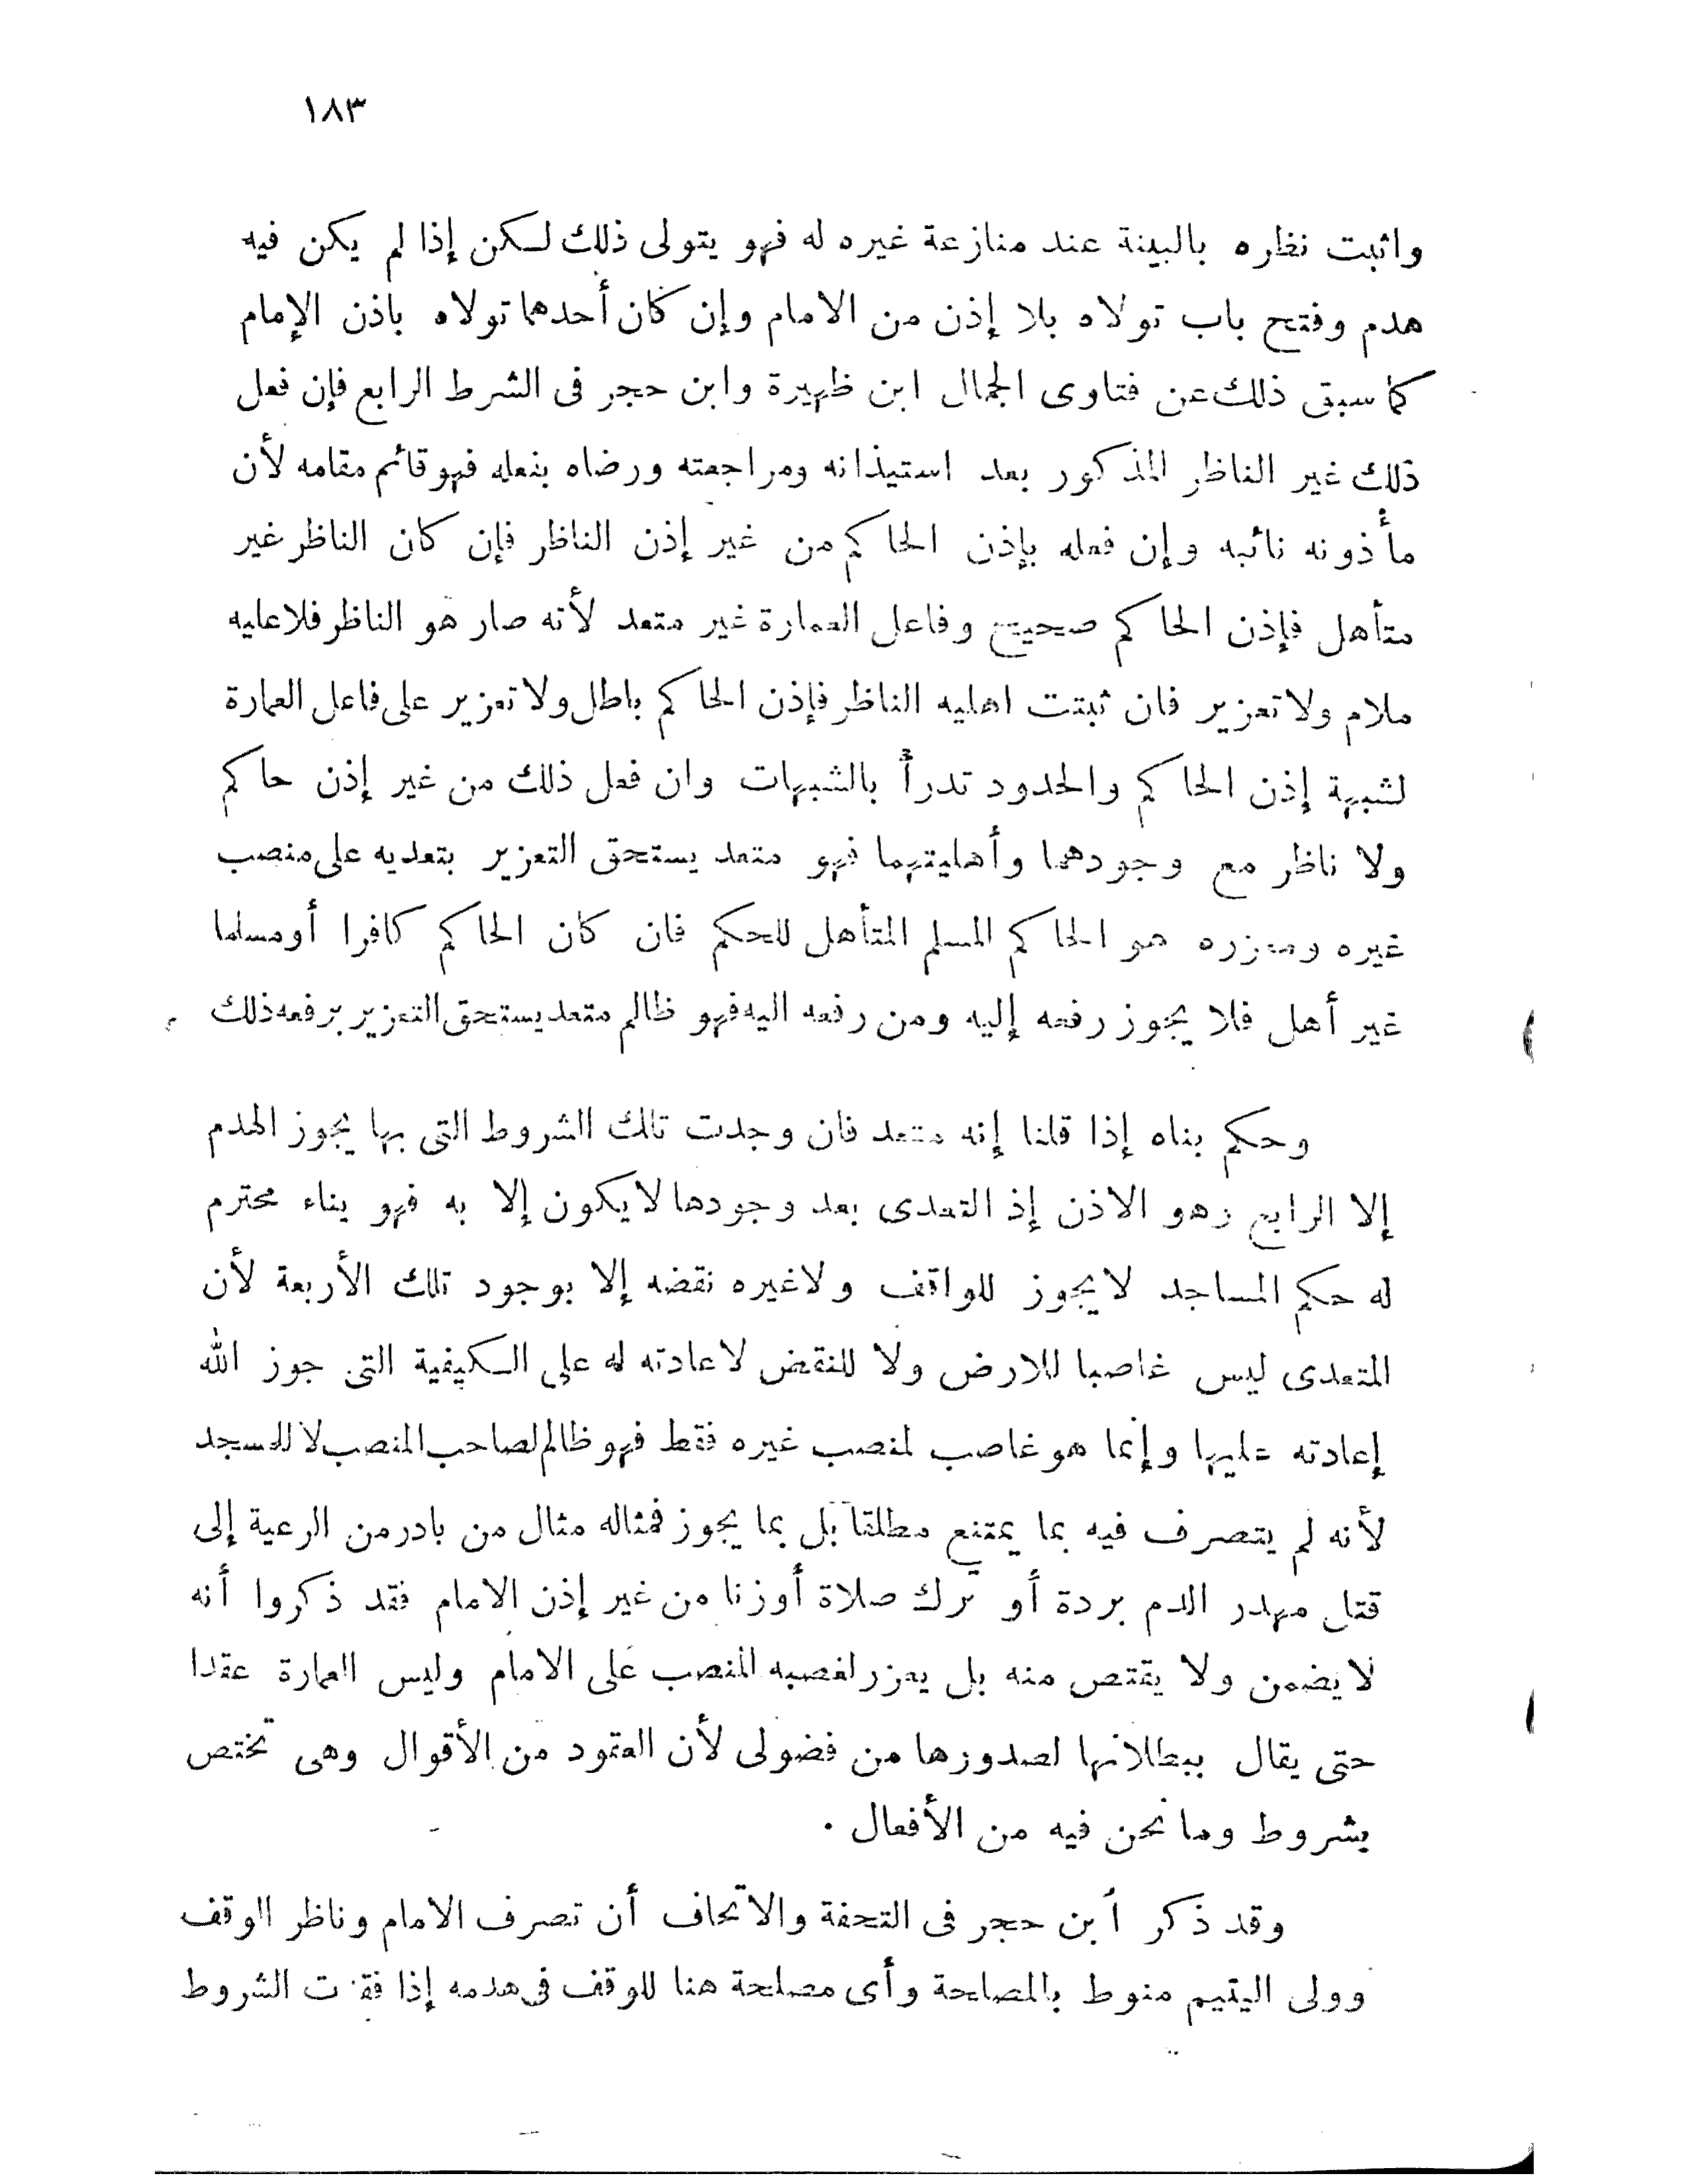 ١٨٣
واثبت نظاره بالبينة عند منازعة غيره له فهو يتولى ذلك لكن إذا لم يكن فيه
هدم وفتح باب تولاه بلا إذن من الامام وإن كان أحدهما تولاه باذن الإمام
كما سبق ذلك عن فتاوى الجمال ابن ظهيرة وابن حجر فى الشرط الرابع فإن فعل
ذلك غير الناظر المذكور بعد استيذانه ومراجعته ورضاه بفعله فهو قائم مقامه لأن
مأذونه نائبه وإن فعله بإذن الحاكم من غير إذن الناظر فإن كان الناظر غير
متأهل فإذن الحاكم صحيح وفاعل العمارة غير متعد لأنه صار هو الناظر فلا عليه
ملام ولا تعزير فان ثبتت اهليه الناظر فإذن الحاكم باطل ولا تعزير على فاعل العمارة
لشبهة إذن الحاكم والحدود تدرأ بالشبهات وان فعل ذلك من غير إذن حاكم
ولا ناظر مع وجودهما وأهليتهما فهو متعد يستحق التعزير بتعديه على منصب
غيره ومعزره هو الحاكم المسلم المتأهل للحكم فان كان الحاكم كافرا أو مسلما
غير أهل فلا يجوز رفعه إليه ومن رفعه اليه فهو ظالم متعد يستحق التعزير برفعه ذلك
وحكم بناه إذا قلنا إنه متعد فان وجدت تلك الشروط التى بها يجوز الهدم
إلا الرابع وهو الاذن إذ التعدى بعد وجودها لا يكون إلا به فهو بناء محترم
له حكم المساجد لا يجوز للواقف ولا غيره نقضه إلا بوجود تلك الأربعة لأن
المتعدى ليس غاصبا للارض ولا للنقض لاعادته له على الكيفية التى جوز الله
إعادته عليها وإنما هو غاصب لمنصب غيره فقط فهو ظالم لصاحب المنصب لا للمسجد
لأنه لم يتصرف فيه بما يمتنع مطلقا بل بما يجوز فمثاله مثال من بادر من الرعية إلى
قتل مهدر الدم بردة أو ترك صلاة أو زنا من غير إذن الامام فقد ذكروا أنه
لا يضمن ولا يقتص منه بل يعزر لغصبه المنصب على الامام وليس العمارة عقدا
حتى يقال ببطلانها لصدورها من فضولى لأن العقود من الأقوال وهى تختص
بشروط وما نحن فيه من الأفعال .
وقد ذكر أبن حجر فى التحفة والاتحاف أن تصرف الامام وناظر الوقف
وولى اليتيم منوط بالمصلحة وأى مصلحة هنا للوقف فى هدمه إذا فقدت الشروط